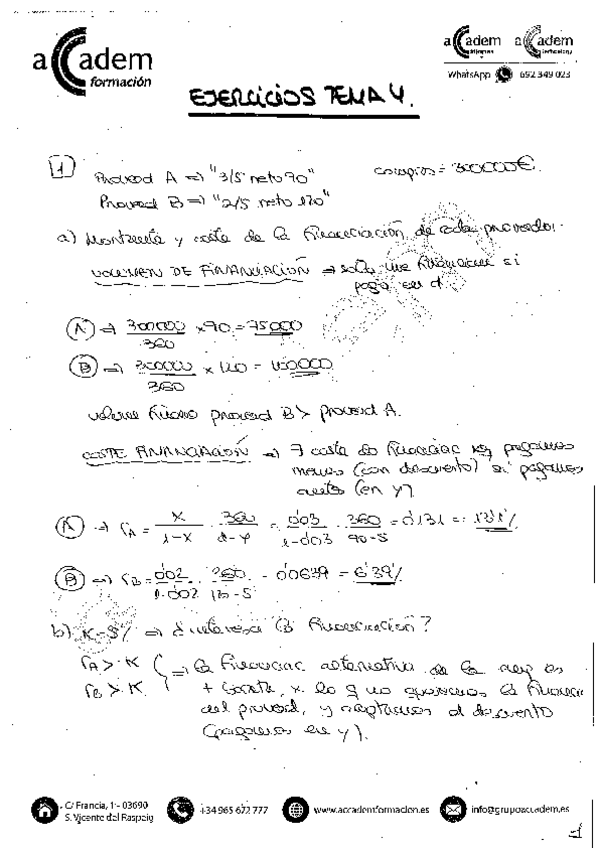 aCCadem
formación
aCCadem aCCadem
WhatsApp 692 349 023
EJERCICIOS TEMA 4.
1
Proveed A => "3/5 neto 90" compras = 300000€.
Proveed B => "2/5 neto 120"
a) Montante y coste de la financiación de cada proveedor.
VOLUMEN DE FINANCIACIÓN => solo me financian si
pago en d.
A => 300000/360 x 90 = 75000
B => 300000/360 x 120 = 100000
volumen financ proveed B > proveed A.
COSTE FINANCIACIÓN => coste de financiac pagamos
menos (con descuento) si pagamos
antes (en y)
A => rA = x/1-x · 360/d-y = 0'03/1-0'03 · 360/90-5 = 0'131 = 13'1%
B => rB = 0'02/1-0'02 · 360/120-5 = 0'0639 = 6'39%
b) K=5% => interesa la financiación?
rA > K
rB > K. } => la financiac alternativa de la es
+ barata, x lo q no queremos la
del proveed, y aceptamos el descuento
(pagamos en y).
C/ Francia, 1 - 03690
S. Vicente del Raspeig
+34 965 672 777
www.accademformacion.es
info@grupoaccadem.es
1